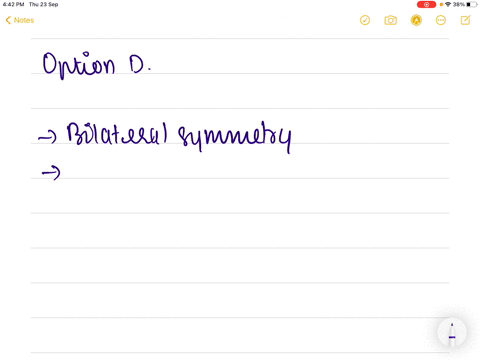 4:42 PM Thu 23 Sep
38%
Notes
Option D.
→ Bilateral symmetry
→